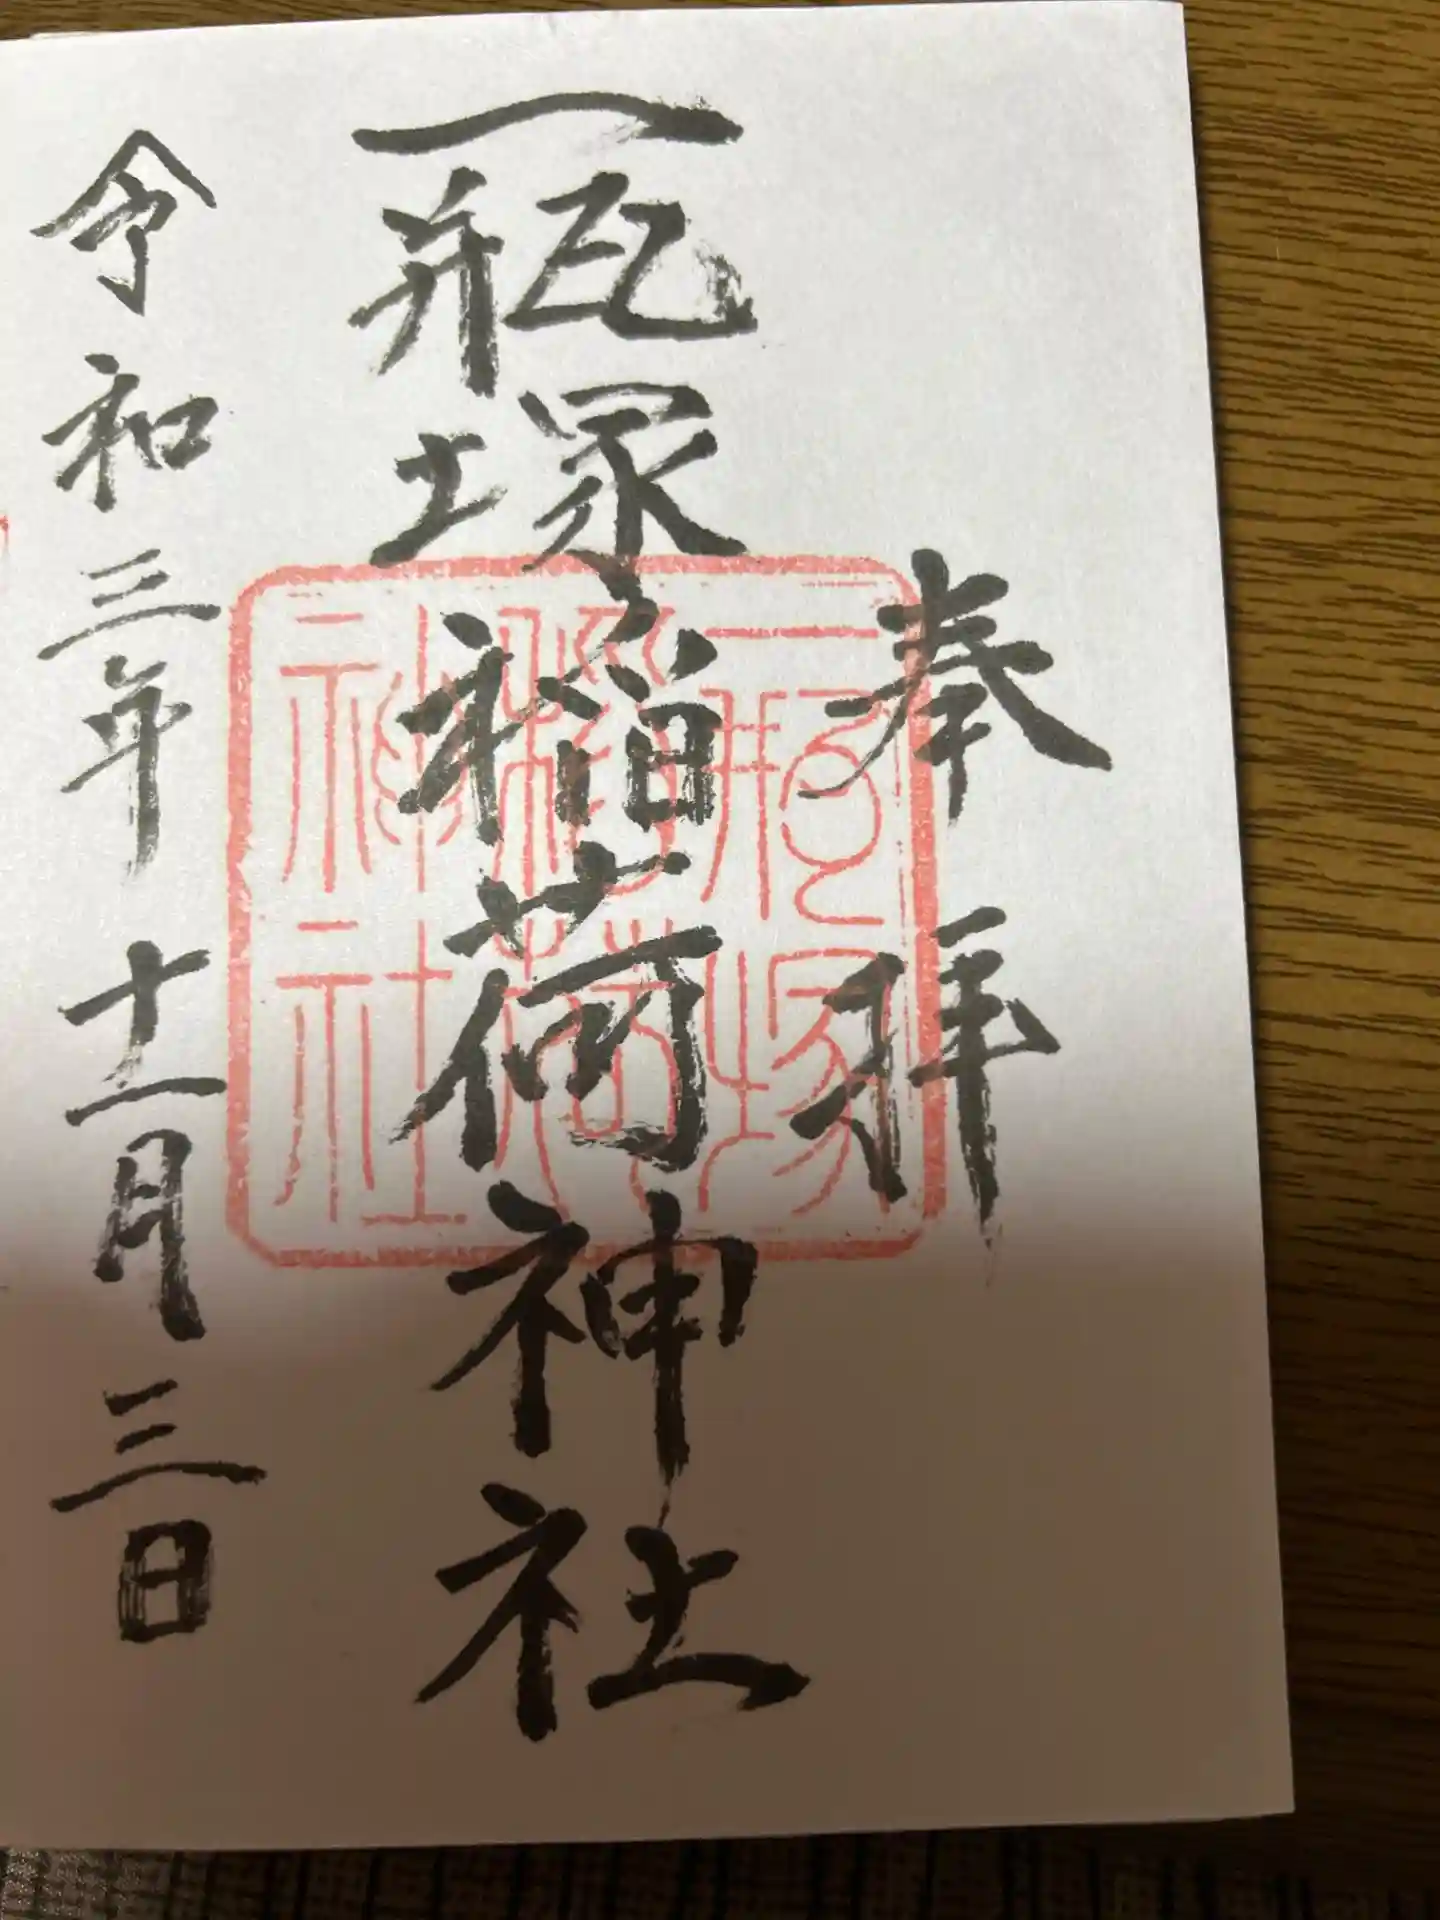 奉拝
一瓶塚稲荷神社
一瓶塚
稲荷
神社
令和三年十一月三日